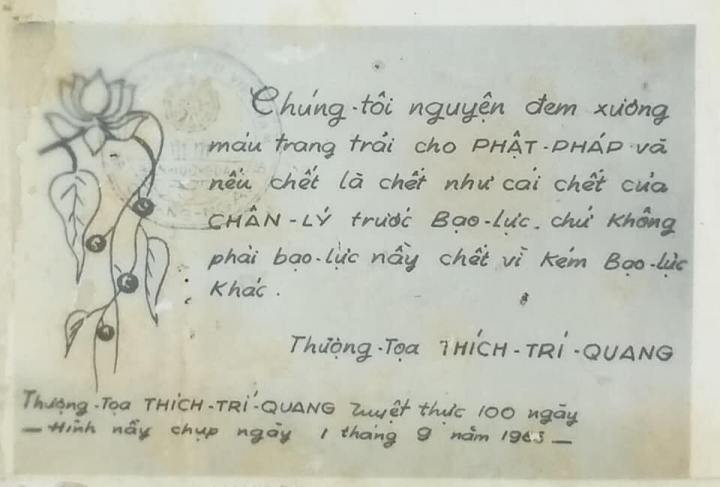 Chúng-tôi nguyện đem xương
máu trang trải cho PHẬT-PHÁP và
nếu chết là chết như cái chết của
CHÂN-LÝ trước Bạo-lực. chứ không
phải bạo-lực nầy chết vì kém Bạo-lực
khác.
Thượng-Tọa THÍCH-TRÍ-QUANG
Thượng-Tọa THÍCH-TRÍ-QUANG Tuyệt thực 100 ngày
— Hình nầy chụp ngày 1 tháng 9 năm —